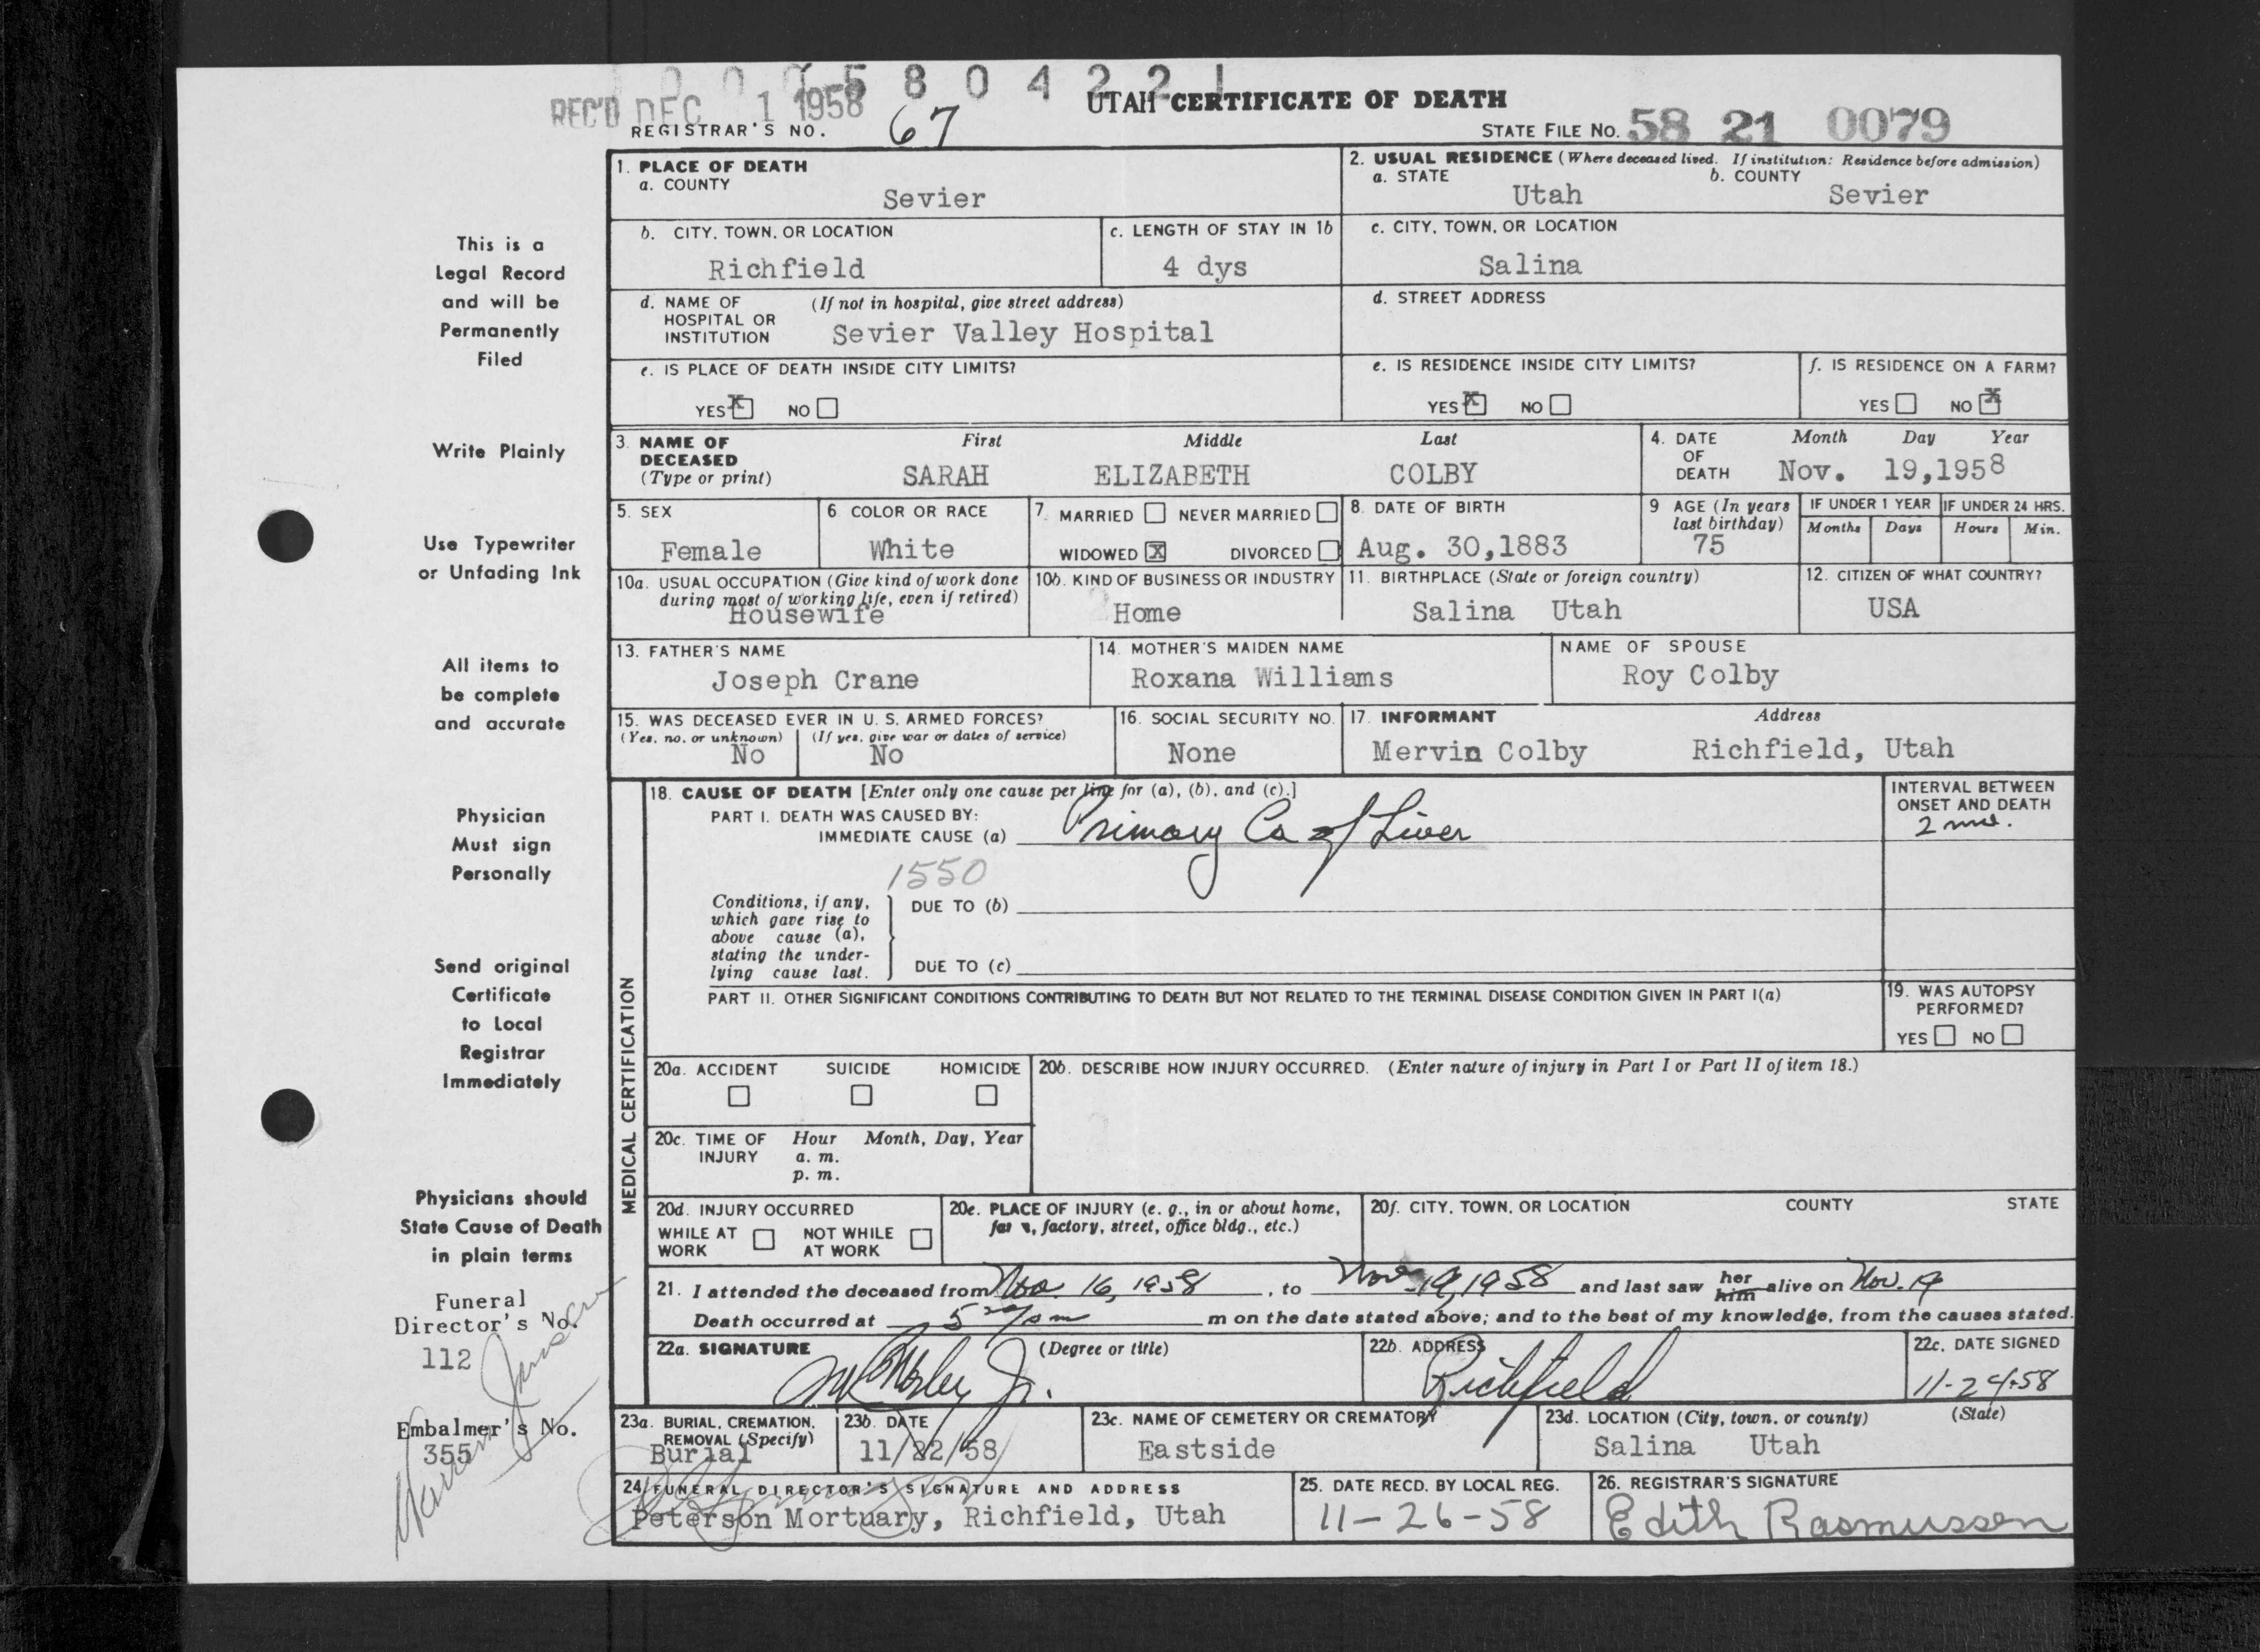 0 0 0 5 8 0 4 2 2 1
REC'D DEC 1 1958
UTAH CERTIFICATE OF DEATH
REGISTRAR'S NO. 67
STATE FILE NO. 58 21 0079
1. PLACE OF DEATH
a. COUNTY
Sevier
2. USUAL RESIDENCE (Where deceased lived. If institution: Residence before admission)
a. STATE b. COUNTY
Utah Sevier
b. CITY, TOWN, OR LOCATION
Richfield
c. LENGTH OF STAY IN 1b
4 dys
c. CITY, TOWN, OR LOCATION
Salina
d. NAME OF HOSPITAL OR INSTITUTION (If not in hospital, give street address)
Sevier Valley Hospital
d. STREET ADDRESS
e. IS PLACE OF DEATH INSIDE CITY LIMITS?
YES X NO
e. IS RESIDENCE INSIDE CITY LIMITS?
YES X NO
f. IS RESIDENCE ON A FARM?
YES NO X
3. NAME OF DECEASED (Type or print)
First Middle Last
SARAH ELIZABETH COLBY
4. DATE OF DEATH
Month Day Year
Nov. 19,1958
5. SEX
Female
6 COLOR OR RACE
White
7. MARRIED NEVER MARRIED
WIDOWED X DIVORCED
8. DATE OF BIRTH
Aug. 30,1883
9 AGE (In years last birthday)
75
IF UNDER 1 YEAR
Months Days
IF UNDER 24 HRS.
Hours Min.
10a. USUAL OCCUPATION (Give kind of work done during most of working life, even if retired)
Housewife
10b. KIND OF BUSINESS OR INDUSTRY
Home
11. BIRTHPLACE (State or foreign country)
Salina Utah
12. CITIZEN OF WHAT COUNTRY?
USA
13. FATHER'S NAME
Joseph Crane
14. MOTHER'S MAIDEN NAME
Roxana Williams
NAME OF SPOUSE
Roy Colby
15. WAS DECEASED EVER IN U. S. ARMED FORCES?
(Yes, no, or unknown) (If yes, give war or dates of service)
No No
16. SOCIAL SECURITY NO.
None
17. INFORMANT Address
Mervin Colby Richfield, Utah
MEDICAL CERTIFICATION
18. CAUSE OF DEATH [Enter only one cause per line for (a), (b), and (c).]
PART I. DEATH WAS CAUSED BY:
IMMEDIATE CAUSE (a) Primary Ca of Liver
INTERVAL BETWEEN ONSET AND DEATH
1550
Conditions, if any, which gave rise to above cause (a), stating the underlying cause last.
DUE TO (b)
DUE TO (c)
PART II. OTHER SIGNIFICANT CONDITIONS CONTRIBUTING TO DEATH BUT NOT RELATED TO THE TERMINAL DISEASE CONDITION GIVEN IN PART I(a)
19. WAS AUTOPSY PERFORMED?
YES NO
20a. ACCIDENT SUICIDE HOMICIDE
20b. DESCRIBE HOW INJURY OCCURRED. (Enter nature of injury in Part I or Part II of item 18.)
20c. TIME OF INJURY Hour Month, Day, Year
a. m.
p. m.
20d. INJURY OCCURRED
WHILE AT WORK NOT WHILE AT WORK
20e. PLACE OF INJURY (e. g., in or about home, farm, factory, street, office bldg., etc.)
20f. CITY, TOWN, OR LOCATION COUNTY STATE
21. I attended the deceased from Nov. 16, 1958, to Nov 19, 1958 and last saw her him alive on Nov. 19
Death occurred at m on the date stated above; and to the best of my knowledge, from the causes stated.
22a. SIGNATURE (Degree or title)
Jr.
22b. ADDRESS
Richfield
22c. DATE SIGNED
11-24-58
23a. BURIAL, CREMATION, REMOVAL (Specify)
Burial
23b. DATE
11/22/58
23c. NAME OF CEMETERY OR CREMATORY
Eastside
23d. LOCATION (City, town, or county) (State)
Salina Utah
24. FUNERAL DIRECTOR'S SIGNATURE AND ADDRESS
Peterson Mortuary, Richfield, Utah
25. DATE RECD. BY LOCAL REG.
11-26-58
26. REGISTRAR'S SIGNATURE
Edith Rasmussen
This is a
Legal Record
and will be
Permanently
Filed
Write Plainly
Use Typewriter
or Unfading Ink
All items to
be complete
and accurate
Physician
Must sign
Personally
Send original
Certificate
to Local
Registrar
Immediately
Physicians should
State Cause of Death
in plain terms
Funeral
Director's No.
112
Embalmer's No.
355